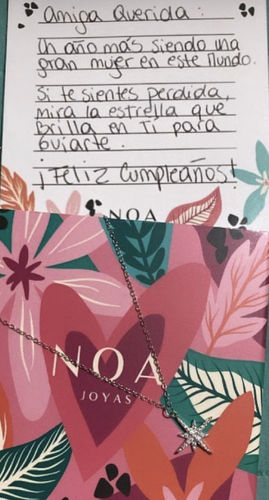 Amiga Querida :
Un año más siendo una
gran mujer en este Mundo.
Si te sientes perdida,
mira la estrella que
Brilla en Ti para
Guiarte.
¡Feliz Cumpleaños!
NOA
NOA
JOYAS